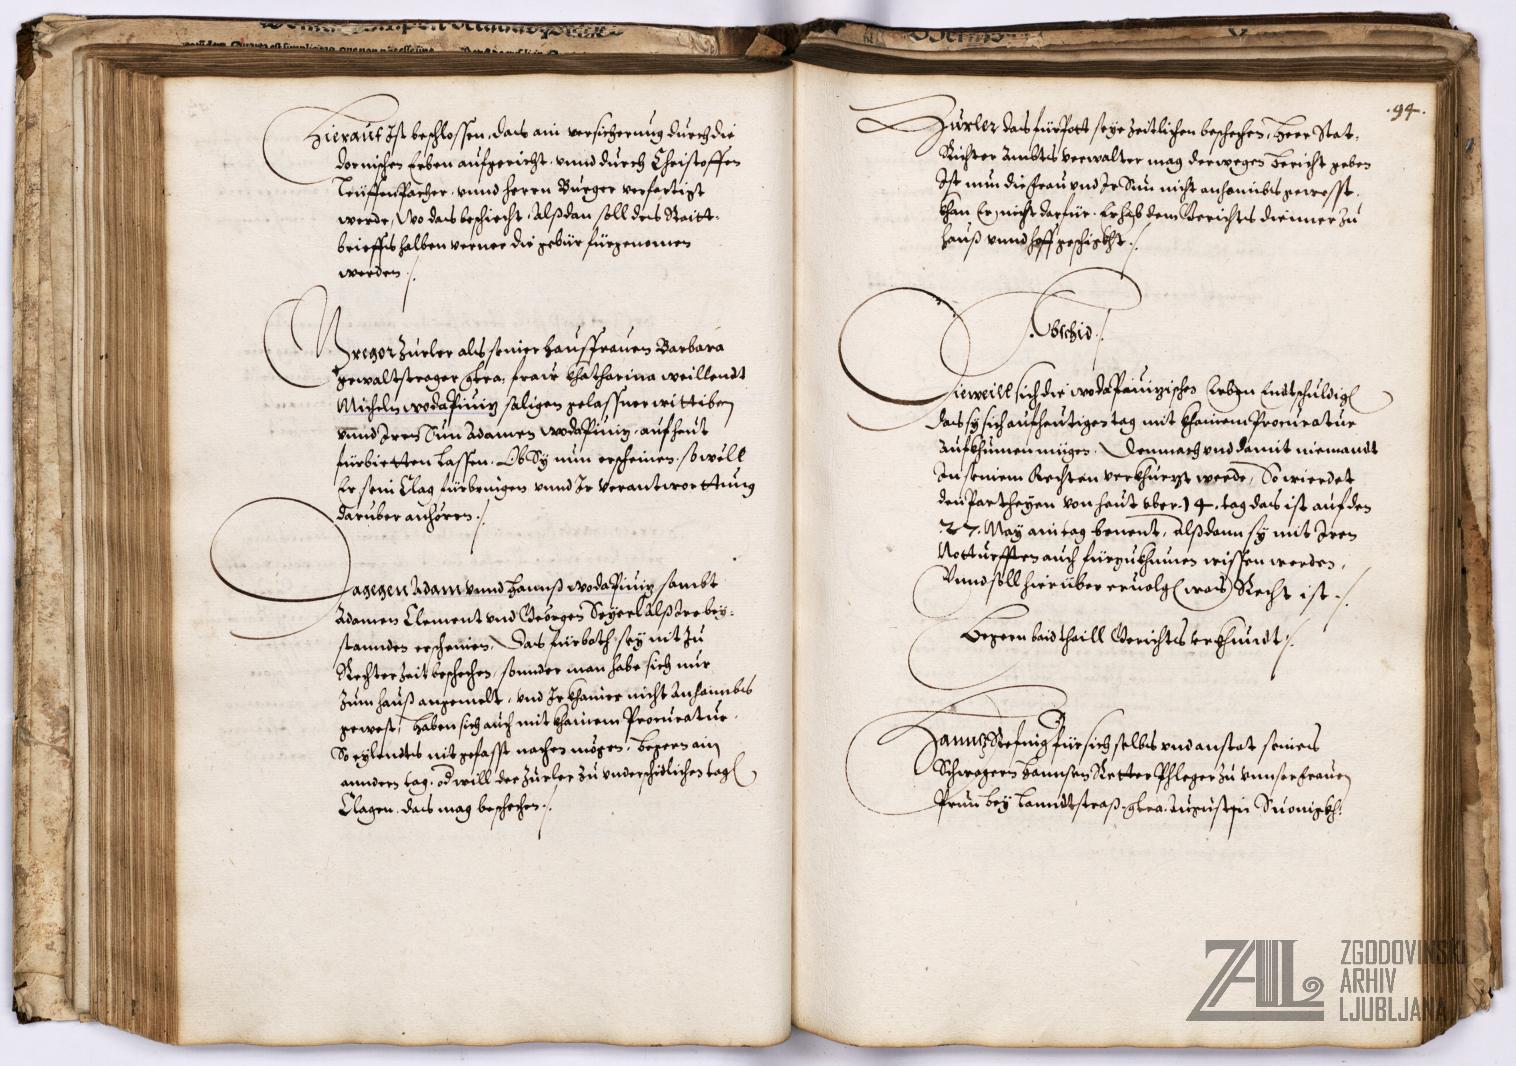 Hierauf Ist beschlossen, das ain versicherung durch die
dornischen Erben aufgericht, vnnd durch Christoffen
vnnd herrn Burger verfertigt
werde, Wo das beschiecht, Alßdan soll des Raitt=
brieffs halben verner die gebür fürgenomen
werden ./.
Gregor Zürler als seiner hausfrauen Barbara
gewaltstrager frau Khatharina weillendt
Micheln wodapiuiz säligen gelassner wittiben
vnnd Iren Sun Adamen wodapiuiz, auf heut
fürbietten lassen. Ob Sy nun erscheinen, so well
Er sein Clag fürbringen vnnd Ir verantworttung
daruber anhören ./.
Dagegen Adam vnnd Hannß wodapiuiz sambt
Adamen Clement vnd Geörgen Seyerl Alß Ire bey=
stannden erscheinen, Das fürboth sey nit zu
Rechter Zeit beschehen, sonnder man habe sich nur
zum hauß angemelt, vnd Ir khainer nicht Anhaimbs
gewest, haben sich auch mit khainem Procuratur
So eylendts nit gefasst machen mögen, begern ain
anndern tag, od will der Zürler zu vnderschidlichen tagen
Clagen, das mag beschehen ./.
.94.
Zürler das fürpott seye zeitlichen beschehen, Herr Stat=
Richter Ambts verwalter mag derwegen bericht geben
Ist nun die frau vnd Ir Sun nicht anhaimbs gewesst,
khan Er nicht darfür. Er hab den Gerichts diennner zu
hauß vnnd hoff geschickht ./.
Abschid ./.
Dieweill sich die wodapauizischen Erben Endtschuldigen
das sy sich auf heutigen tag mit khainem Procuratur
Aufkhumen mügen. Demnach vnd damit niemandt
In seinem Rechten verkhurzt werde, So wierdet
den Partheyen von heut vber 14. tag das ist auf den
27. May ain tag benent, Alßdann sy mit Iren
Notturfften auch fürzukhumen wissen werden,
Vnnd soll hierüber eruolgen was Recht ist ./.
Begern baid thaill Gerichts erkhundt ./.
Hannß Stesnig für sich selbs vnd anstat seines
Schwagern Hannsen Retter Phleger zu vnnser frauen
Prun bey Lanndtstraß, Augustin
ZAL
ZGODOVINSKI
ARHIV
LJUBLJANA